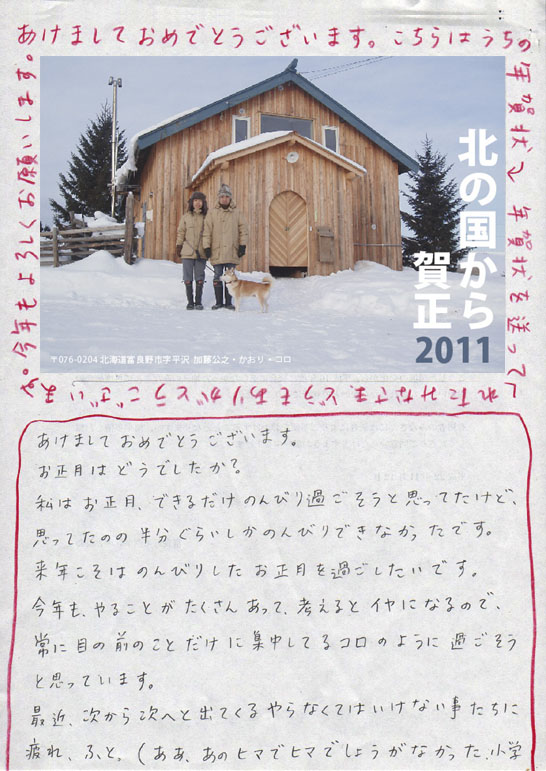 あけましておめでとうございます。こちらはうちの
年賀状で年賀状を送ってく
れたみなさまどうもありがとうございま
す。今年もよろしくお願いします。
北の国から
賀正
2011
〒076-0204 北海道富良野市字平沢 加藤公之・かおり・コロ
あけましておめでとうございます。
お正月はどうでしたか?
私はお正月、できるだけのんびり過ごそうと思ってたけど、
思ってたのの半分ぐらいしかのんびりできなかったです。
来年こそはのんびりしたお正月を過ごしたいです。
今年も、やることがたくさんあって、考えるとイヤになるので、
常に目の前のことだけに集中してるコロのように過ごそう
と思っています。
最近、次から次へと出てくるやらなくてはいけない事たちに
疲れ、ふと、(ああ、あのヒマでヒマでしょうがなかった、小学